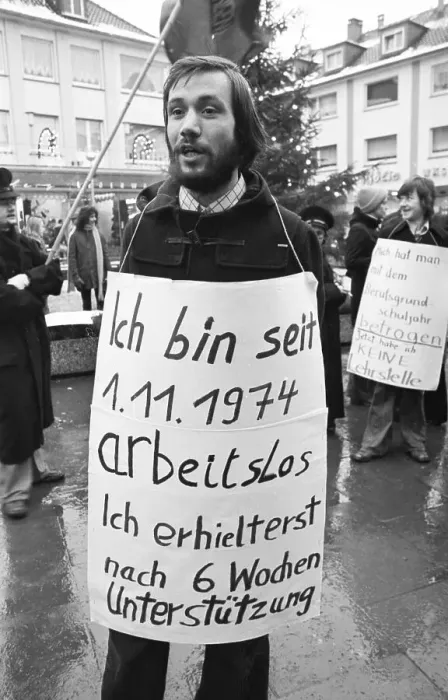 Ich bin seit
1.11.1974
arbeitslos
Ich erhielterst
nach 6 Wochen
Unterstützung
Mich hat man
mit dem
Berufsgrund-
schuljahr
betrogen
Jetzt habe ich
KEINE
Lehrstelle